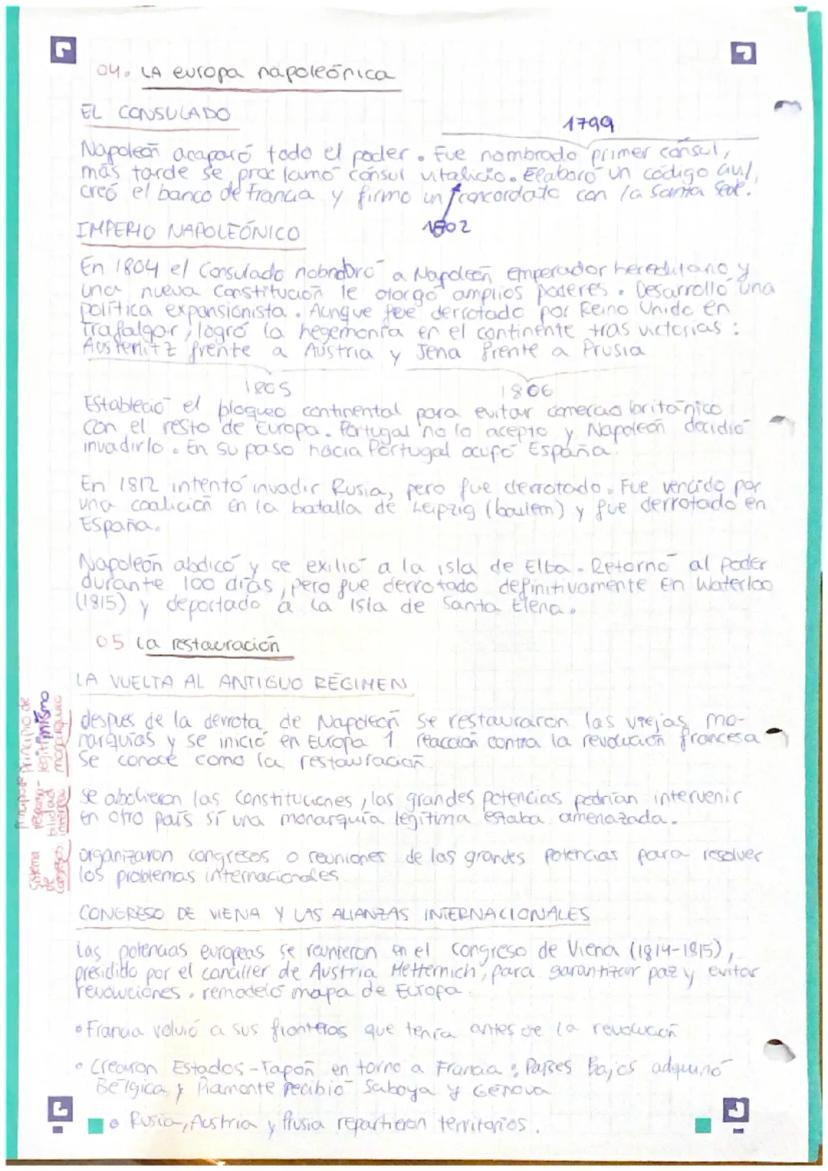 04. LA europa napoleónica
EL CONSULADO
1799
Napoleón acaparó todo el poder. Fue nombrado primer cónsul,
más tarde se proclamó cónsul vitalicio. Elaboró un código civil,
creó el banco de Francia y firmo un concordato con la Santa Sede.
1802
IMPERIO NAPOLEÓNICO
En 1804 el Consulado nobnbró a Napoleón emperador hereditario y
una nueva constitución le otorgó amplios poderes. Desarrolló una
política expansionista. Aunque fue derrotado por Reino Unido en
Trafalgar, logró la hegemonía en el continente tras victorias:
Austerlitz frente a Austria y Jena frente a Prusia
1805 1806
Estableció el bloqueo continental para evitar comercio britanico
con el resto de Europa. Portugal no lo acepto y Napoleón decidió
invadirlo. En su paso hacia Portugal ocupó España.
En 1812 intentó invadir Rusia, pero fue derrotado. Fue vencido por
una coalición en la batalla de Leipzig (boulem) y fue derrotado en
España.
Napoleón abdicó y se exilió a la isla de Elba. Retornó al poder
durante 100 días, pero fue derrotado definitivamente en Waterloo
(1815) y deportado a la Isla de Santa Elena.
05 La restauración
LA VUELTA AL ANTIGUO RÉGIMEN
Principio de legitimismo monarquico
despues de la derrota de Napoleón se restauraron las viejas mo-
narquías y se inició en Europa 1 reacción contra la revolución francesa
Se conoce como la restauración.
Principio de responsabilidad internac
se abolieron las constituciones, las grandes potencias podrían intervenir
en otro país sí una monarquía legítima estaba amenazada.
Sistema de congresos
organizaron congresos o reuniones de las grandes potencias para resolver
los problemas internacionales
CONGRESO DE VIENA Y LAS ALIANZAS INTERNACIONALES
Las potencias europeas se reunieron en el congreso de Viena (1814-1815),
presidido por el canciller de Austria Metternich, para garantizar paz y evitar
revoluciones. remodeló mapa de Europa.
• Francia volvió a sus fronteras que tenía antes de la revolución
• Crearon Estados-Tapón en torno a Francia: Países Bajos adquirió
Bélgica y Piamonte recibió Saboya y Génova
• Rusia, Austria y Prusia repartieron territorios.